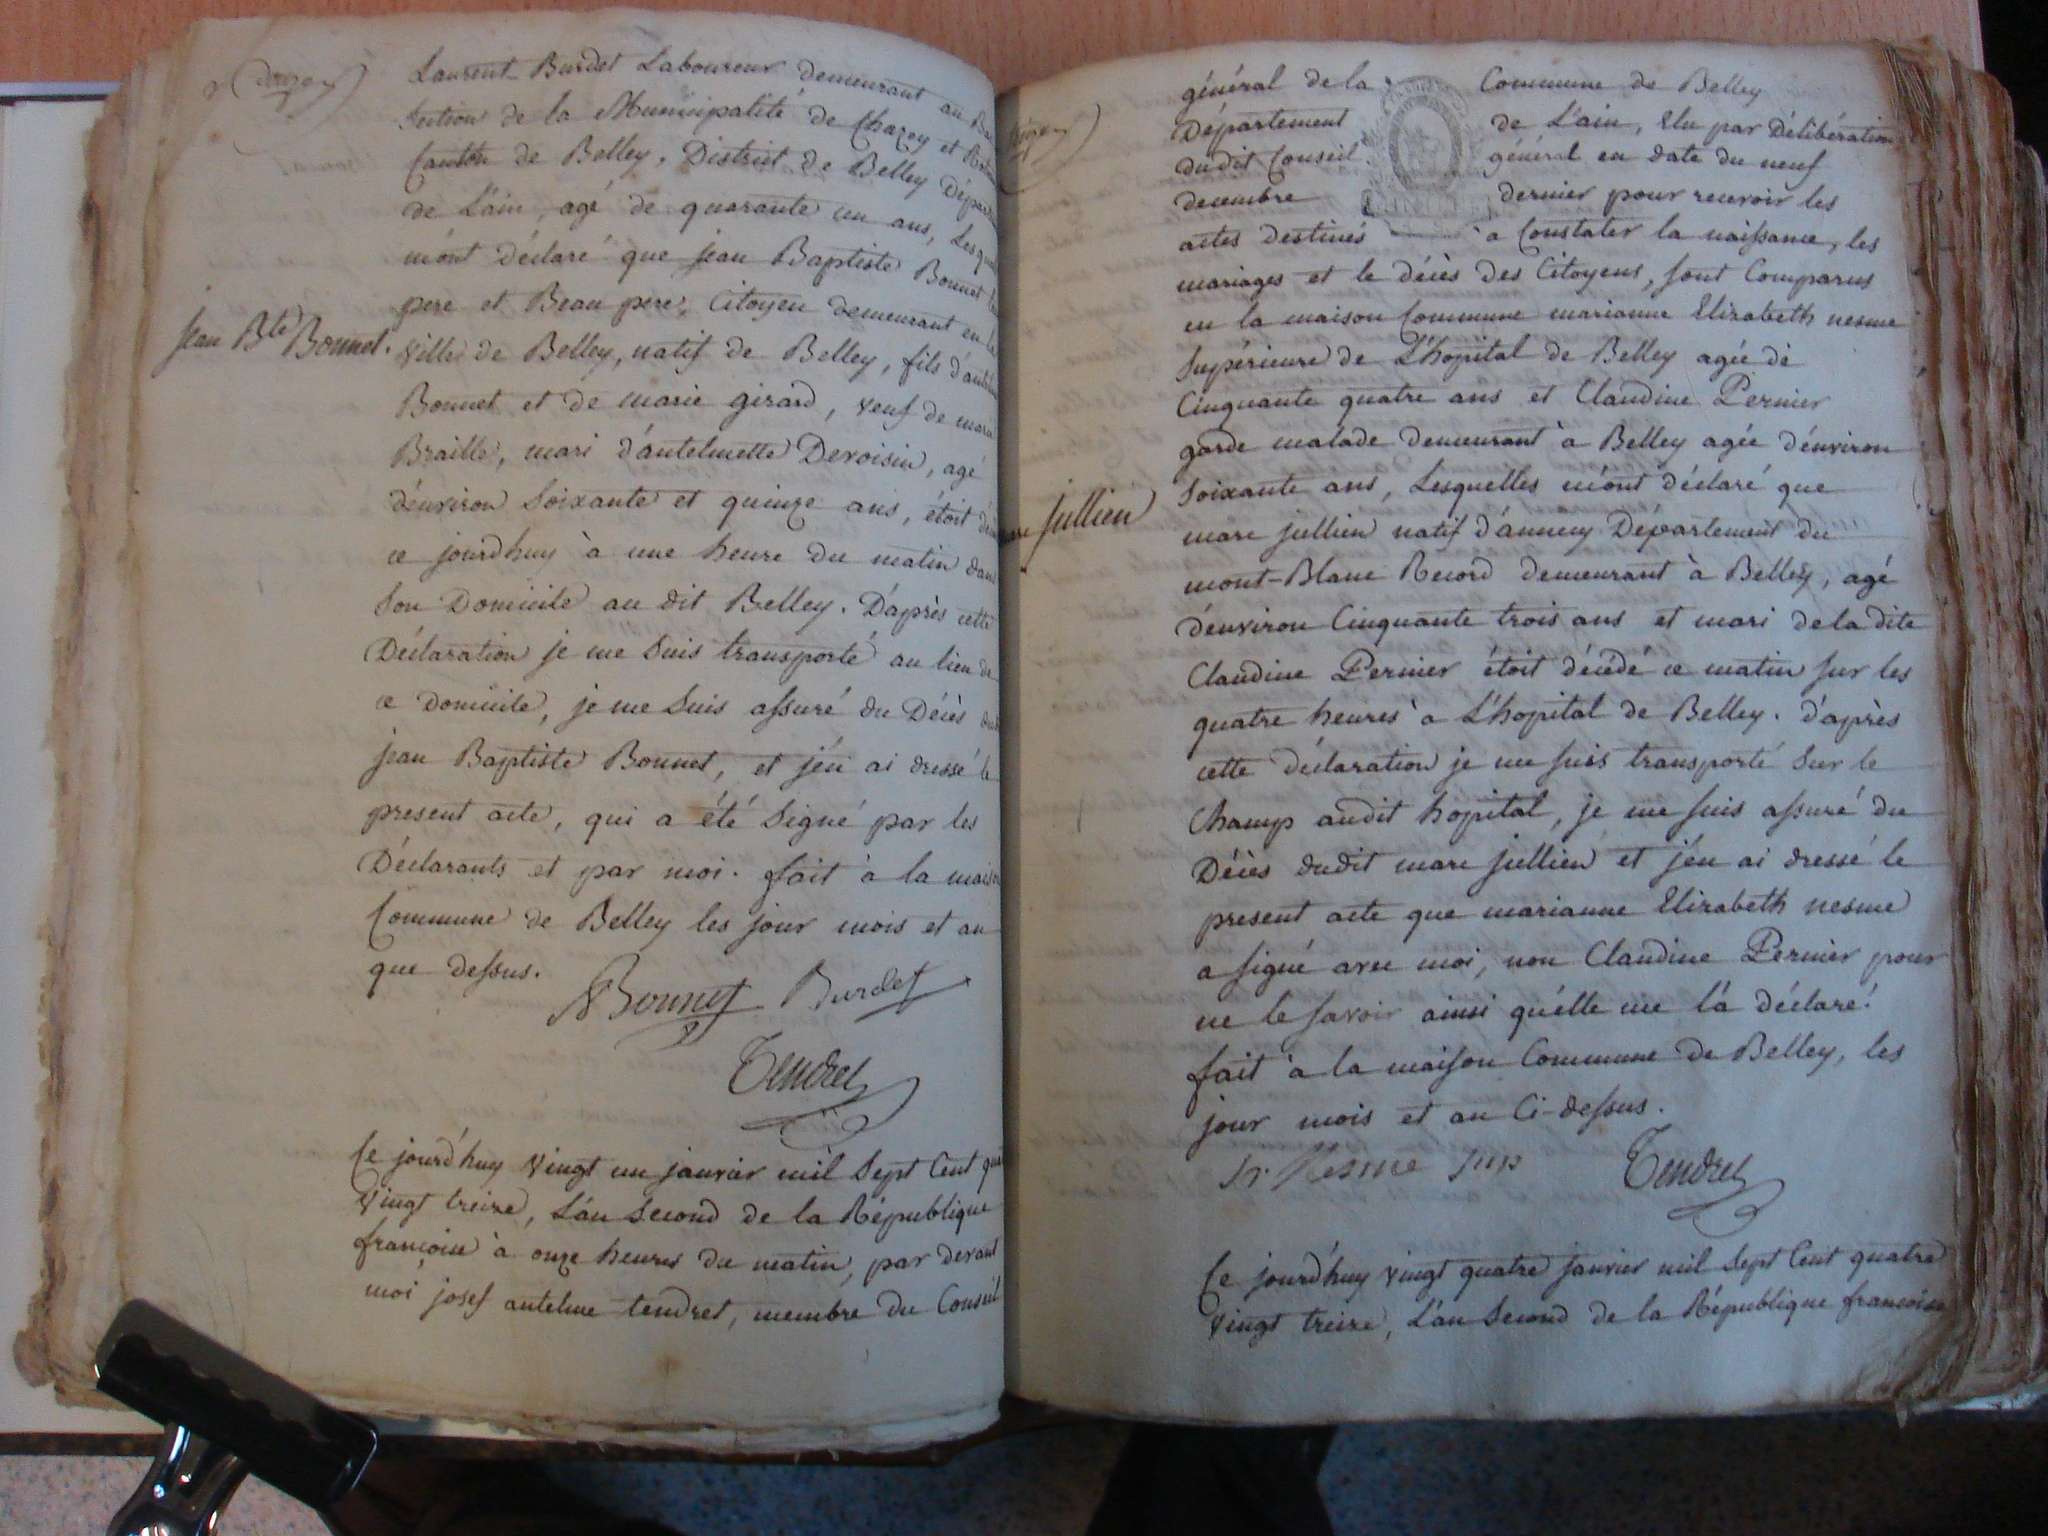 Laurent Burdet Laboureur demeurant au
Section de la Municipalité de Chazey et
Canton de Belley, District de Belley
de L'ain, agé de quarante un ans,
m'ont déclaré que jean Baptiste Bonnet
pere et Beau pere, Citoyen demeurant en la
jean Bte Bonnet.
ville de Belley, natif de Belley, fils
Bonnet et de marie girard, veuf de
Braille, mari d'antelmette Devoisin, agé
d'environ Soixante et quinze ans, étoit
ce jourdhuy à une heure du matin dans
Son Domicile au dit Belley. D'après cette
Déclaration je me Suis transporté au lieu de
ce domicile, je me Suis assuré du Décès
jean Baptiste Bonnet, et j'en ai dressé le
present acte, qui a été Signé par les
Déclarants et par moi. fait à la maison
Commune de Belley les jour mois et an
que dessus.
Bonnet Burdet
Tendret
Ce jourd'huy vingt un janvier mil Sept Cent
vingt treize, L'an Second de la République
françoise à onze heures du matin, par devant
moi josef antelme tendret, membre du Conseil
général de la Commune de Belley
Département de L'ain, Elu par Délibération
dudit Conseil général en date du neuf
decembre dernier pour recevoir les
actes destinés a Constater la naissance, les
mariages et le décès des Citoyens, sont Comparus
en la maison Commune marianne Elizabeth nesme
Supérieure de L'hopital de Belley agée de
Cinquante quatre ans et Claudine Pernier
garde malade demeurant à Belley agée d'environ
Soixante ans, Lesquelles m'ont déclaré que
jullien
marc jullien natif d'annecy Département du
mont-Blanc Record demeurant à Belley, agé
d'environ Cinquante trois ans et mari de la dite
Claudine Pernier étoit décédé ce matin sur les
quatre heures à L'hopital de Belley. d'après
cette déclaration je me suis transporté Sur le
Champ audit hopital, je me suis assuré du
Décès dudit marc jullien et j'en ai dressé le
present acte que marianne Elizabeth nesme
a signé avec moi, non Claudine Pernier pour
ne le savoir ainsi qu'elle me l'a déclaré.
fait à la maison Commune de Belley, les
jour mois et an Ci-dessus.
Sr. Nesme Sup Tendret
Ce jourd'huy vingt quatre janvier mil Sept Cent quatre
vingt treize, L'an Second de la République françoise